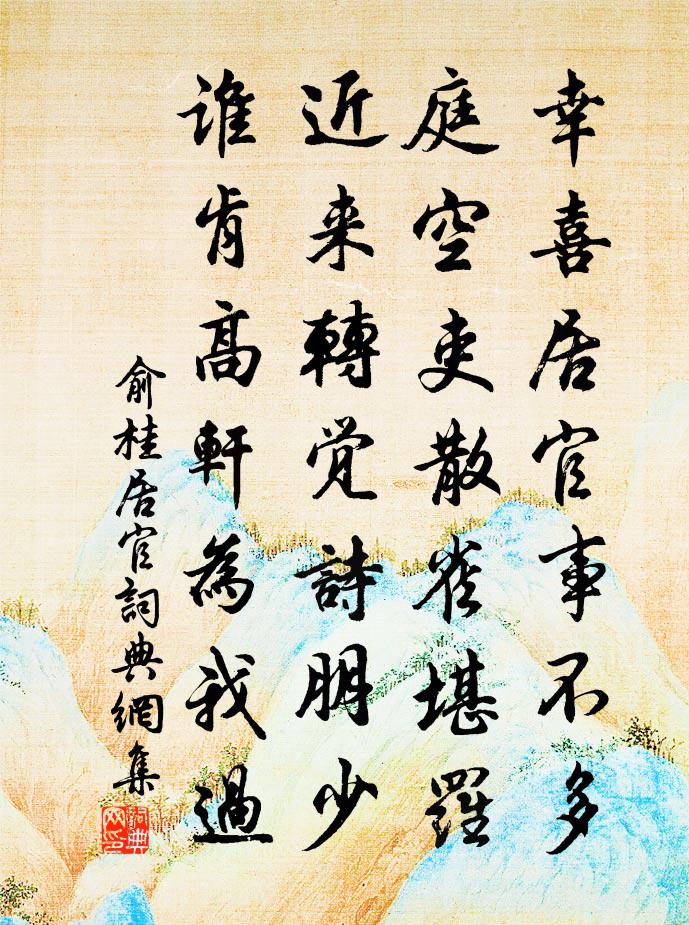 幸喜居官事不多
庭空吏散雀堪羅
近来轉覺詩朋少
誰肯高軒為我過
俞桂居官詞典網集
詞典网印